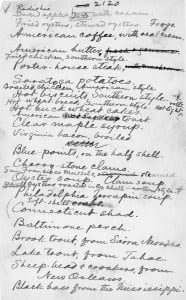 2120
Radishes.
Fried oysters; stewed oysters. Frogs.
American coffee, with real cream
American butter,
Fried chicken, southern style.
Porter-house steak
Saratoga potatoes.
Broiled chicken, American style.
Hot biscuits, Southern style.
Hot wheat bread, Southern style.
Hot buckwheat cakes.
American
Clear maple syrup.
Virginia bacon, broiled
Blue points, on the half shell.
Cherry-stone clams.
San Francisco mussels, steamed
Oyster soup. Clam soup.
Philadelphia terrapin soup.
Soft-shell
Connecticut shad.
Baltimore perch.
Brook trout, from Sierra Nevadas
Lake trout, from Tahoe.
Sheep head & croakers, from
New Orleans.
Black bass from the Mississippi.